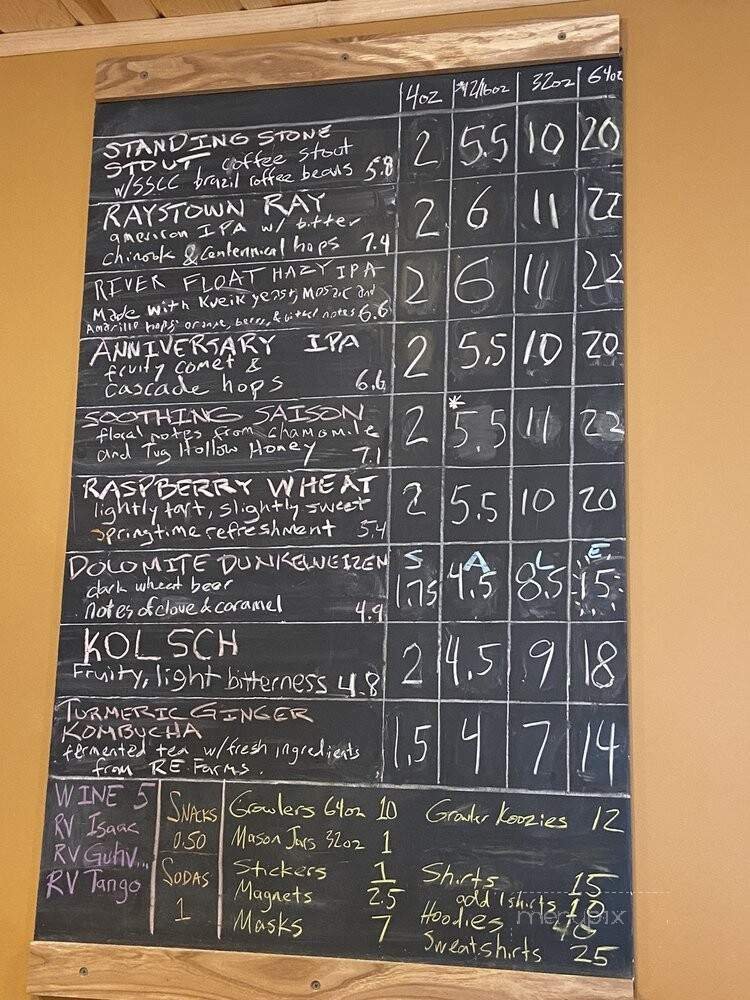 4oz 12/16oz 32oz 64oz
STANDING STONE
STOUT coffee stout
w/SSCC brazil coffee beans 5.8 2 5.5 10 20
RAYSTOWN RAY
american IPA w/ bitter
chinook & Centennical hops 7.4 2 6 11 22
RIVER FLOAT HAZY IPA
Made with Kveik yeast, Mosaic and
Amarillo hops: orange, berry, & bitter notes 6.6 2 6 11 22
ANNIVERSARY IPA
fruity comet &
cascade hops 6.6 2 5.5 10 20
SOOTHING SAISON
floral notes from chamomile
and Tug Hollow Honey 7.1 2 *5.5 11 22
RASPBERRY WHEAT
lightly tart, slightly sweet
springtime refreshment 5.4 2 5.5 10 20
DOLOMITE DUNKELWEIZEN S A L E
dark wheat beer
notes of clove & caramel 4.9 1.75 4.5 8.5 15
KOLSCH
Fruity, light bitterness 4.8 2 4.5 9 18
TURMERIC GINGER
KOMBUCHA
fermented tea w/fresh ingredients
from RE Farms. 1.5 4 7 14
WINE 5
RV Isaac
RV Guhv...
RV Tango
SNACKS
0.50
SODAS
1
Growlers 64oz 10
Mason Jars 32oz 1
Stickers 1
Magnets 2.5
Masks 7
Growler Koozies 12
Shirts 15
add'l shirts 10
Hoodies
Sweatshirts 25
menupix